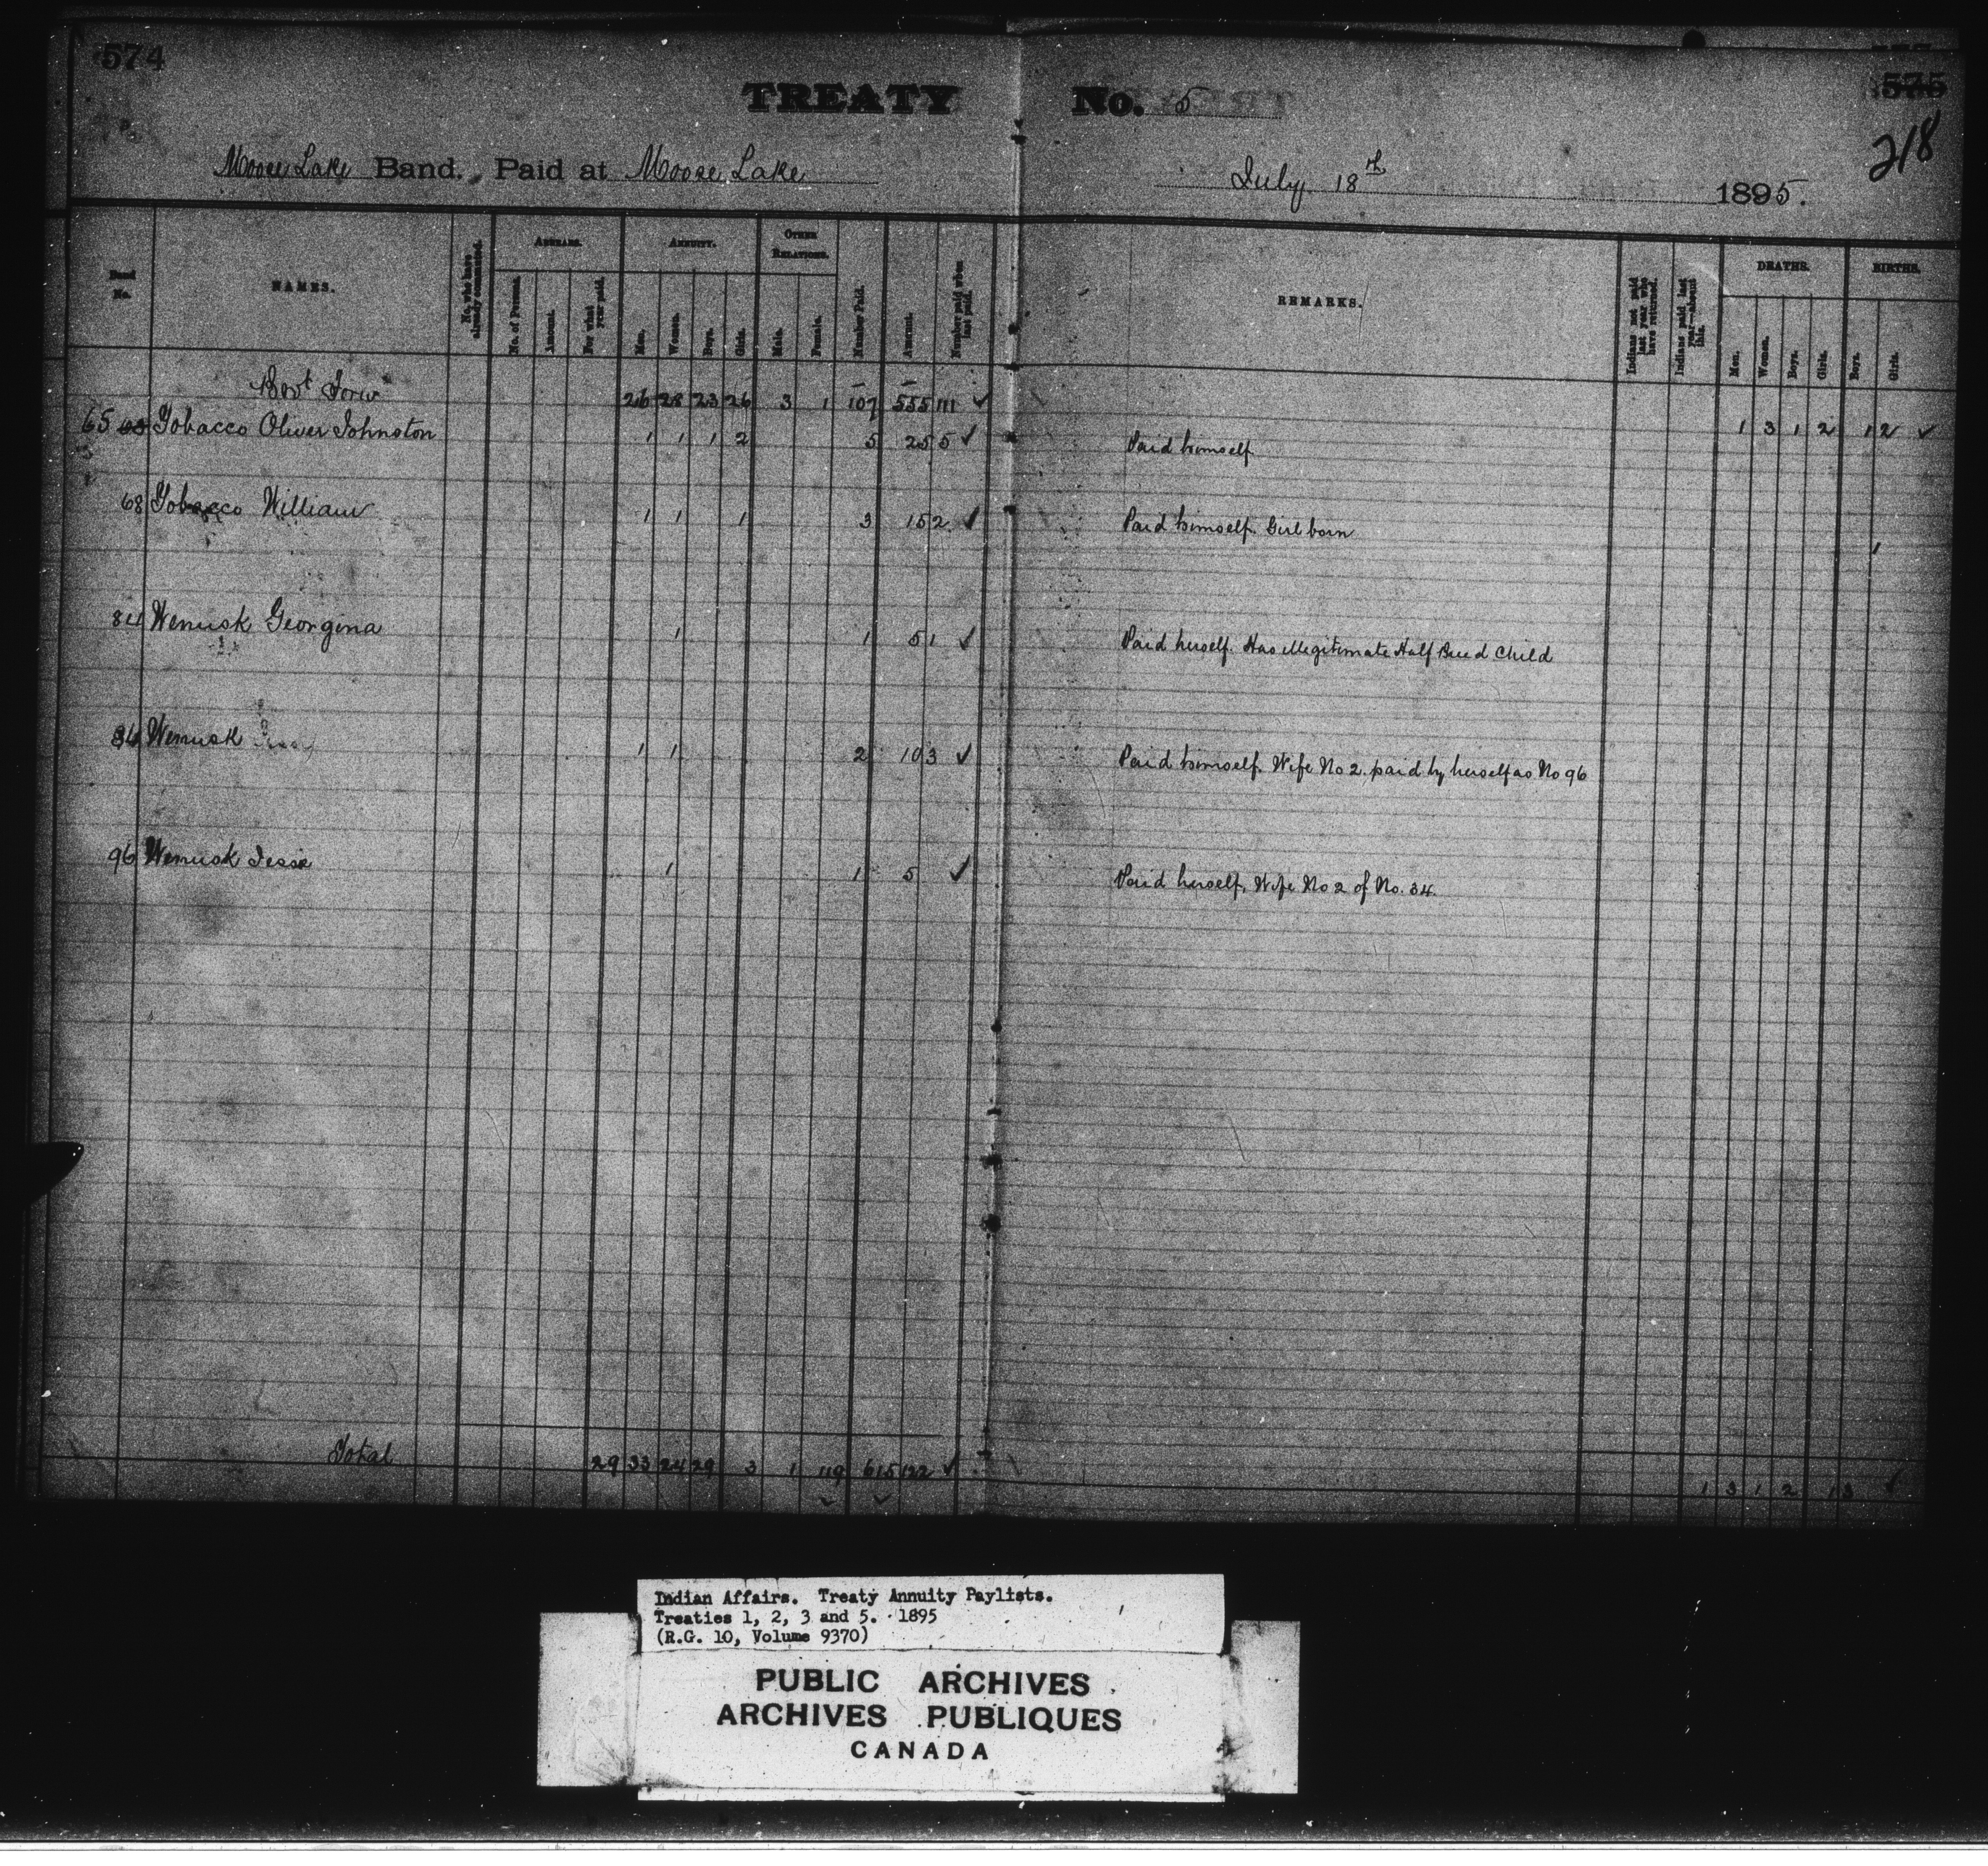 574
575
218
TREATY No. 5
Moose Lake Band. Paid at Moose Lake July 18th 1895.
Band No.
NAMES.
No. who have already commuted.
ARREARS.
No. of Persons.
Amount.
For what year paid.
ANNUITY.
Men.
Women.
Boys.
Girls.
OTHER RELATIONS.
Male.
Female.
Number Paid.
Amount.
Number paid when last paid.
REMARKS.
Indians not paid last year who have returned.
Indians paid last year—absent this.
DEATHS.
Men.
Women.
Boys.
Girls.
BIRTHS.
Boys.
Girls.
Brot Forw 26 28 23 26 3 1 107 555 111 ✓ 1 3 1 2 1 2 ✓
65 Tobacco Oliver Johnston 1 1 1 2 5 25 5 ✓ Paid himself
68 Tobacco William 1 1 1 3 15 2 ✓ Paid himself. Girl born 1
Wenusk Georgina 1 1 5 1 ✓ Paid herself. Has illegitimate Half Breed Child
Wenusk 1 1 2 10 3 ✓ Paid himself. Wife No 2. paid by herself as No 96
96 Wenusk Jesse 1 1 5 ✓ Paid herself, Wife No 2 of No. 34.
Total 29 33 24 29 3 1 119 615 122 ✓ 1 3 1 2 1 3 ✓
Indian Affairs. Treaty Annuity Paylists.
Treaties 1, 2, 3 and 5. 1895
(R.G. 10, Volume 9370)
PUBLIC ARCHIVES
ARCHIVES PUBLIQUES
CANADA